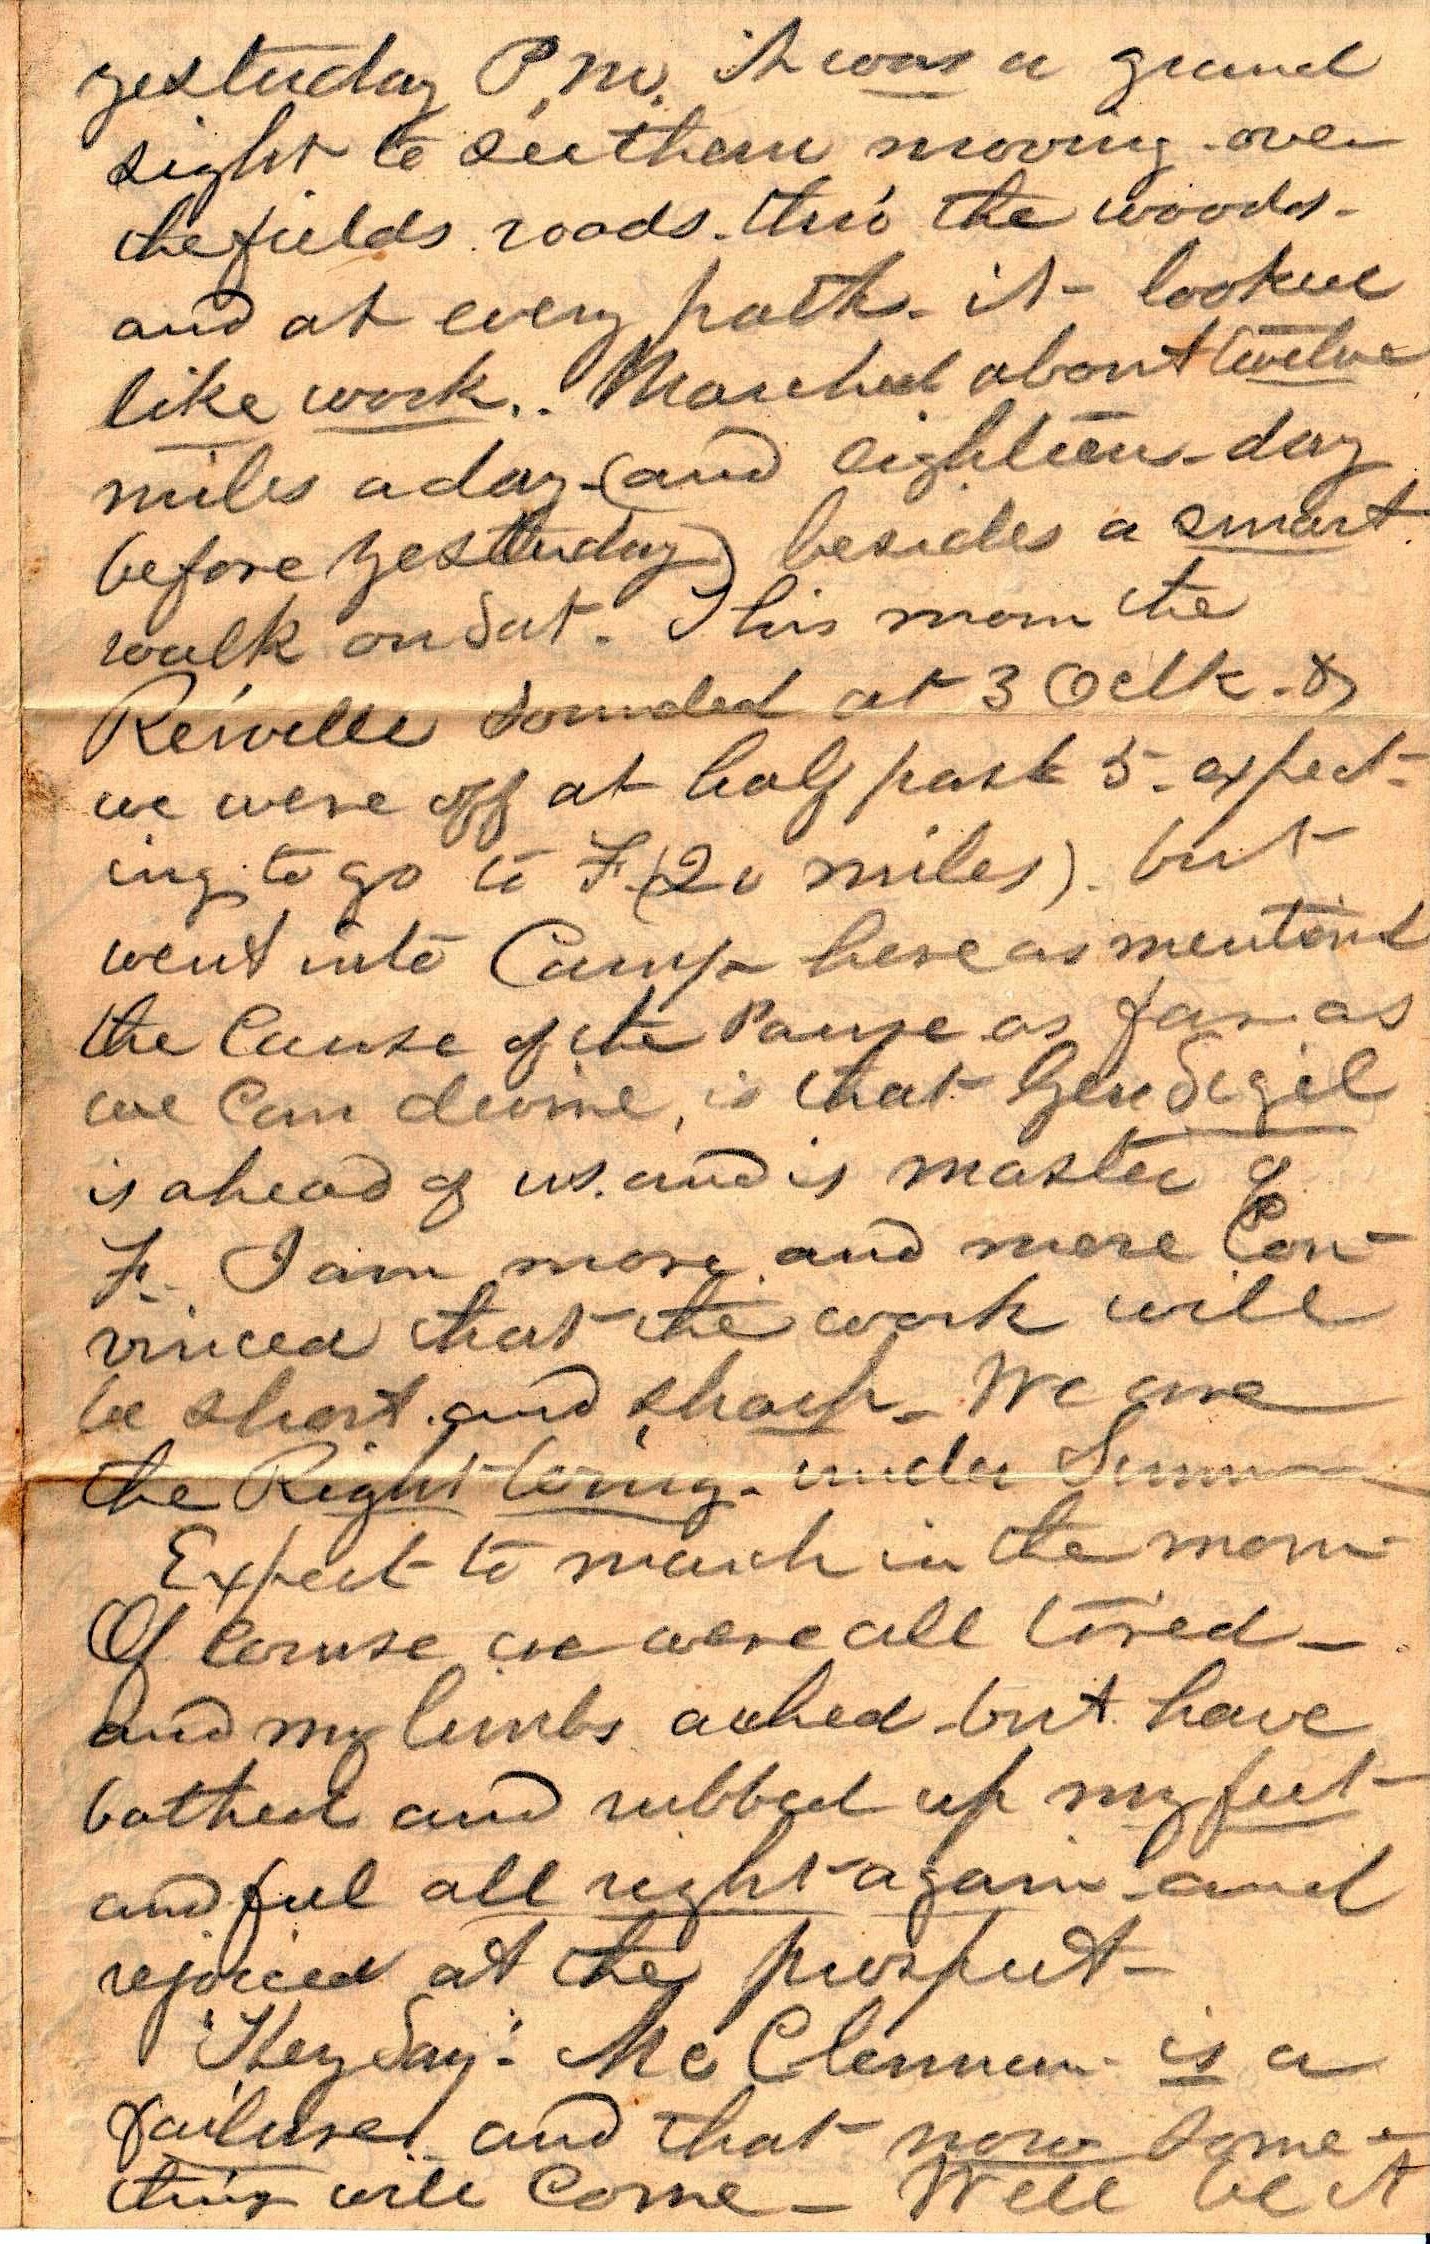 yesterday P.M. it was a grand
sight to see them moving over
the fields roads. thro' the woods.
and at every path. it looked
like work.. Marched about twelve
miles a day (and eighteen day
before yesterday) besides a smart
walk on Sat. This morn the
Reiville sounded at 3 Oclk. &
we were off at half past 5. expect-
ing to go to F. (20 miles). but
went into Camp here as mentiond
the Cause of the Pause as far as
we Can divine, is that Gen Sigel
is ahead of us. and is master of
F. I am more and more Con-
vinced that the work will
be short and sharp. We are
the Right Wing. under Sumner
Expect to march in the morn-
Of Course we were all tired -
and my limbs ached but have
bathed and rubbed up my feet
and feel all right again and
rejoiced at the prospect-
"They Say": McClennan is a
failure! and that now Some-
thing will Come - Well be it